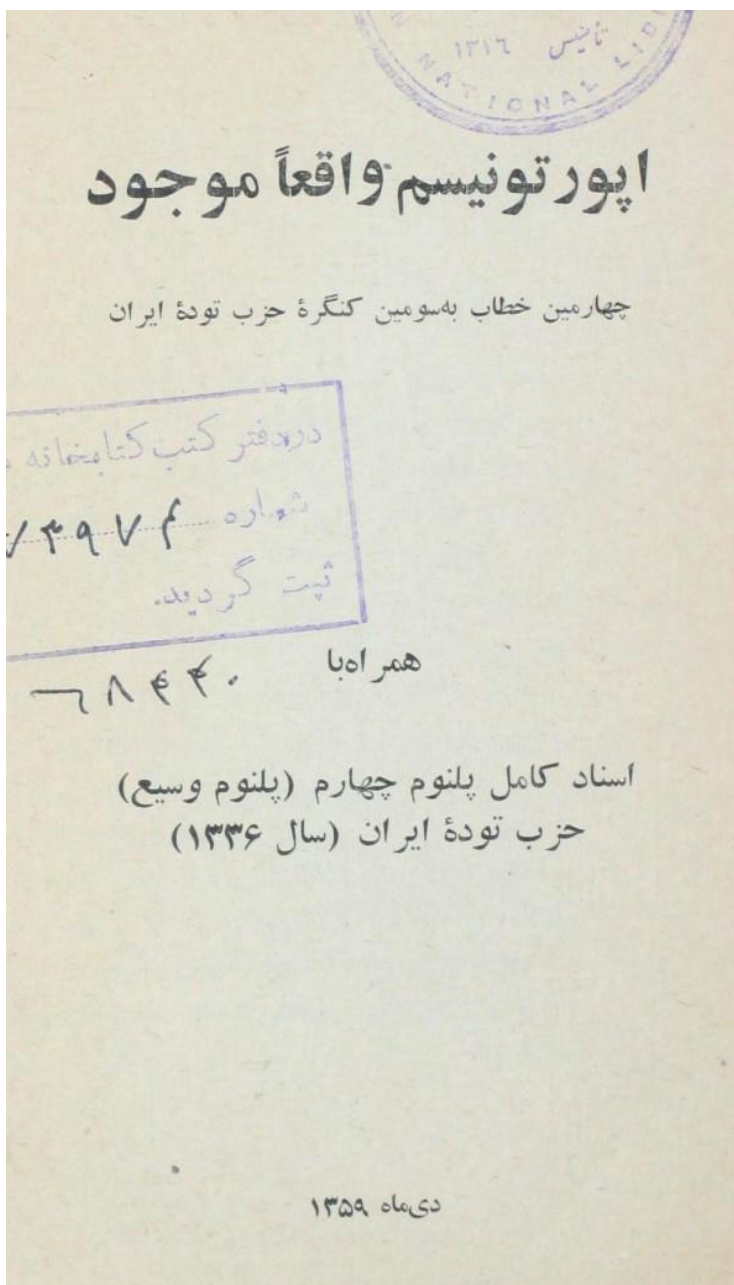 تأسیس ۱۳۱۶
NATIONAL
اپورتونیسم واقعاً موجود
چهارمین خطاب به‌سومین کنگرهٔ حزب تودهٔ ایران
دردفتر کتب کتابخانه
شماره
ثبت گردید.
۶۸۴۴۰
همراه‌با
اسناد کامل پلنوم چهارم (پلنوم وسیع)
حزب تودهٔ ایران (سال ۱۳۳۶)
دی‌ماه ۱۳۵۹